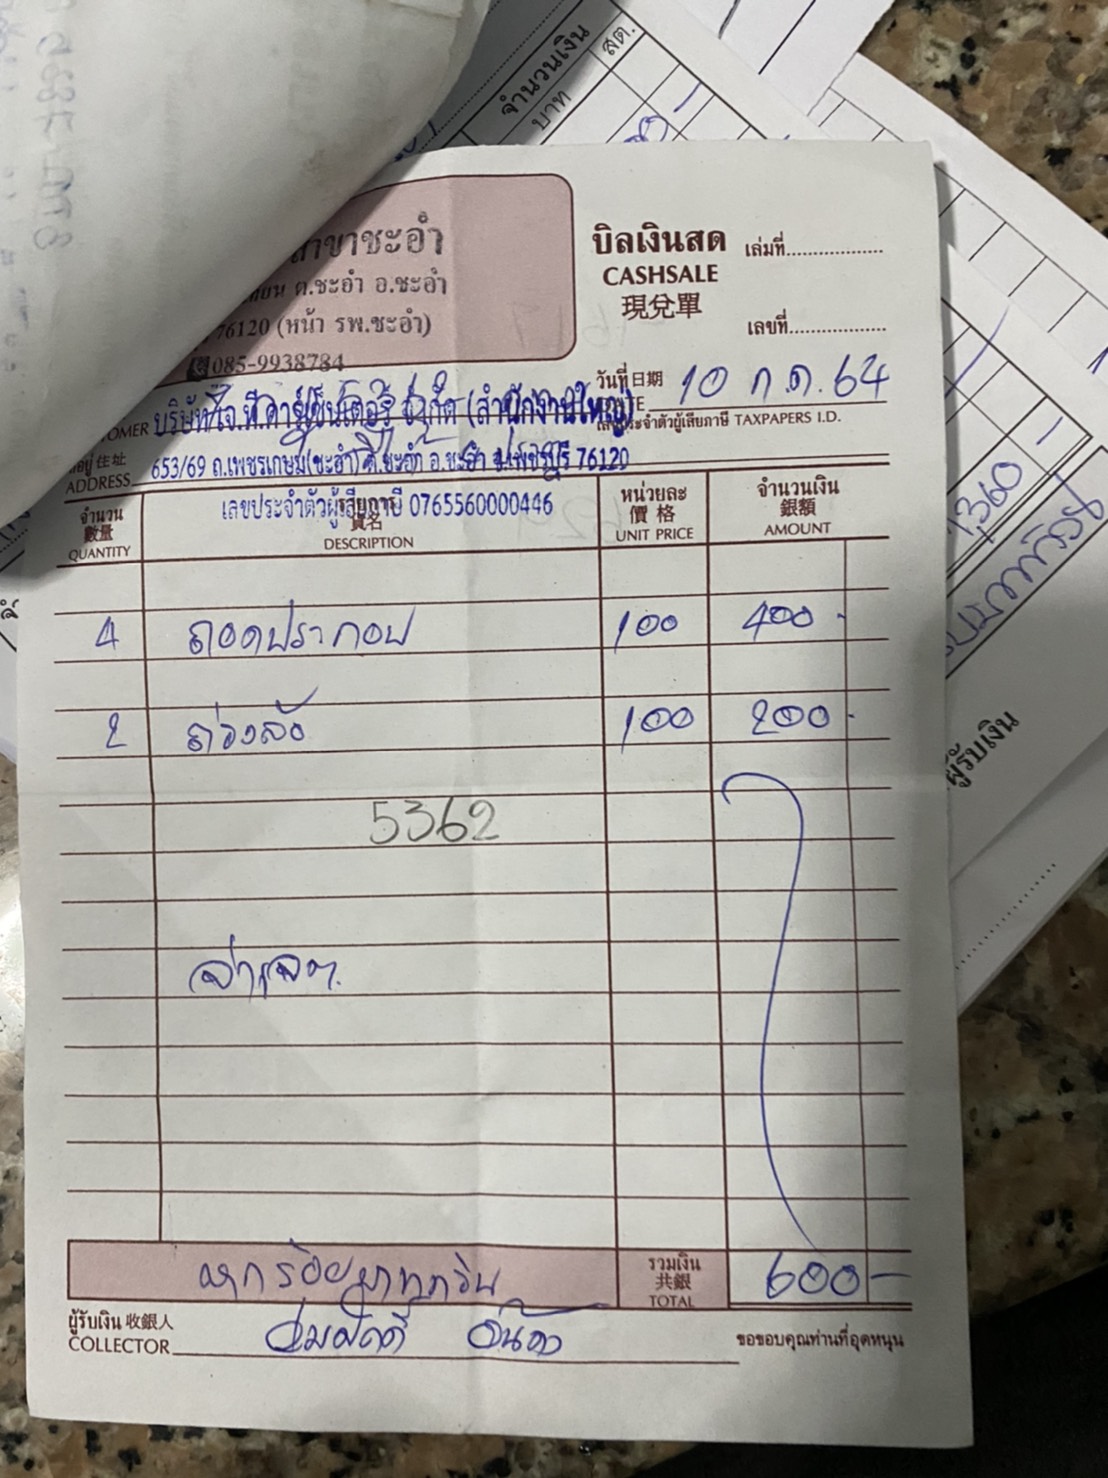 สาขาชะอำ
ต.ชะอำ อ.ชะอำ
76120 (หน้า รพ.ชะอำ)
085-9938784
บิลเงินสด
CASHSALE
現兌單
เล่มที่
เลขที่
วันที่ 日期 10 ก.ค. 64
บริษัท เจ.ที.คาร์เซ็นเตอร์ จำกัด (สำนักงานใหญ่)
เลขประจำตัวผู้เสียภาษี TAXPAPERS I.D.
ที่อยู่ 住址
ADDRESS
653/69 ถ.เพชรเกษม(ชะอำ) ต.ชะอำ อ.ชะอำ จ.เพชรบุรี 76120
เลขประจำตัวผู้เสียภาษี 0765560000446
จำนวน 數量 QUANTITY
DESCRIPTION
หน่วยละ 價格 UNIT PRICE
จำนวนเงิน 銀額 AMOUNT
4 ถอดประกอบ 100 400 -
2 ถ่วงล้อ 100 200 -
5362
หกร้อยบาทถ้วน
รวมเงิน 共銀 TOTAL 600 -
ผู้รับเงิน 收銀人
COLLECTOR
ขอขอบคุณท่านที่อุดหนุน
จำนวนเงิน
บาท สต.
1,360
ผู้รับเงิน